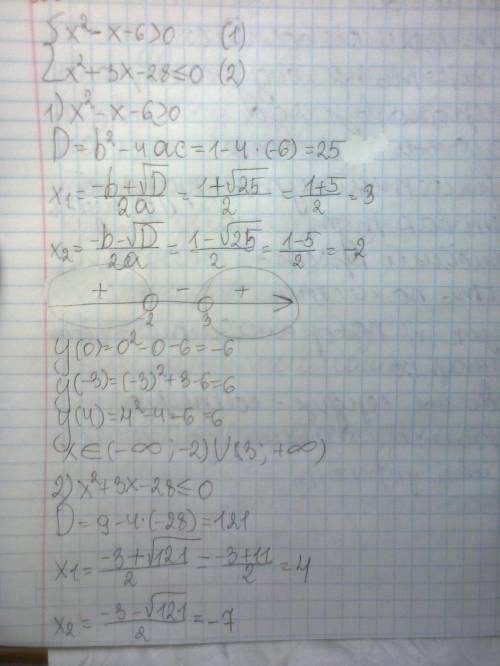 {x²-x-6>0 (1)
{x²+3x-28≤0 (2)
1) x²-x-6>0
D=b²-4ac=1-4·(-6)=25
x₁=(-b+√D)/2a=(1+√25)/2=(1+5)/2=3
x₂=(-b-√D)/2a=(1-√25)/2=(1-5)/2=-2
+ - +
-2 3
y(0)=0²-0-6=-6
y(-3)=(-3)²+3-6=6
y(4)=4²-4-6=6
x∈(-∞;-2)∪(3;+∞)
2) x²+3x-28≤0
D=9-4·(-28)=121
x₁=(-3+√121)/2=(-3+11)/2=4
x₂=(-3-√121)/2=-7